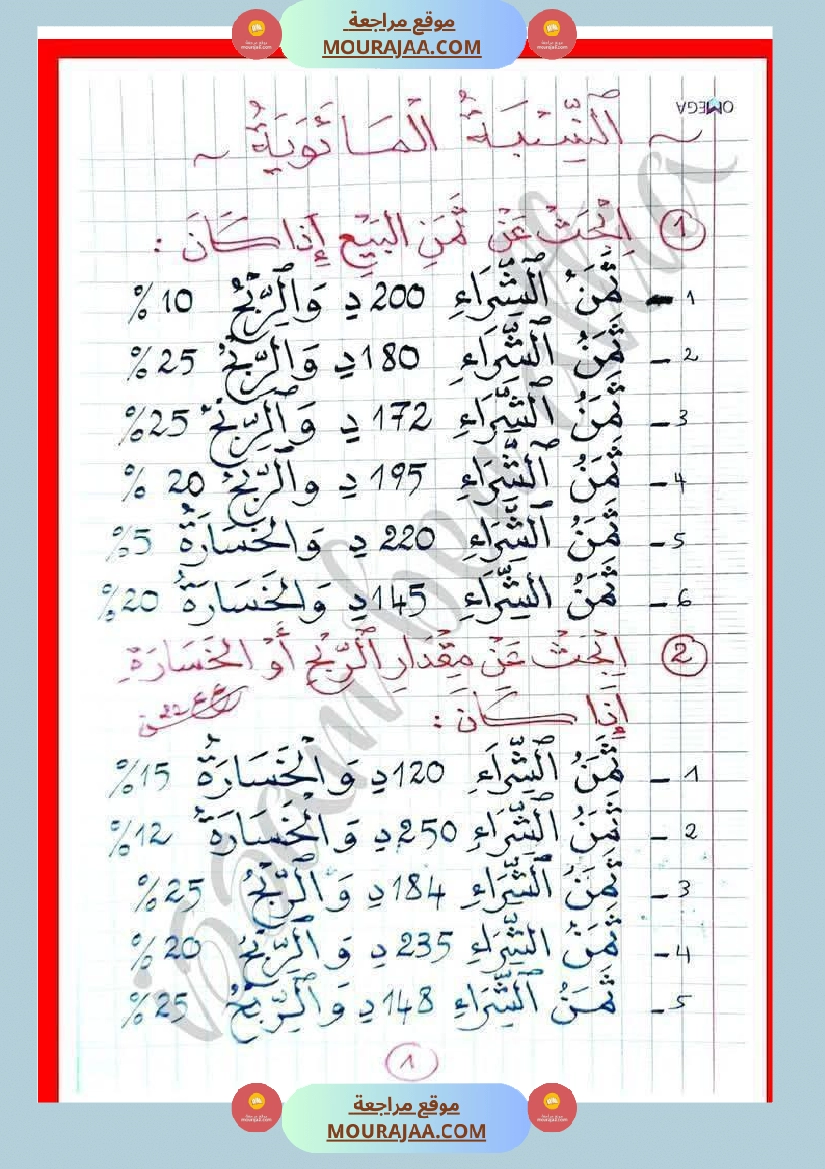 موقع مراجعة
MOURAJAA.COM
OMEGA
~ اَلنِّسْبَةُ الْمِائَوِيَةُ ~
1 اِبْحَثْ عَنْ ثَمَنِ البَيْعِ إِذَا كَانَ :
1 - ثَمَنُ الشِّرَاءِ 200 دِ وَالرِّبْحُ 10 %
2 - ثَمَنُ الشِّرَاءِ 180 دِ وَالرِّبْحُ 25 %
3 - ثَمَنُ الشِّرَاءِ 172 دِ وَالرِّبْحُ 25 %
4 - ثَمَنُ الشِّرَاءِ 195 دِ والرِّبْحُ 20 %
5 - ثَمَنُ الشِّرَاءِ 220 دِ وَالخَسَارَةُ 5 %
6 - ثَمَنُ الشِّرَاءِ 145 دِ وَالخَسَارَةُ 20 %
2 اِبْحَثْ عَنْ مِقْدَارِ الرِّبْحِ أَوْ الخَسَارَةِ
إِذَا كَانَ :
1 - ثَمَنُ الشِّرَاءِ 120 دِ وَالْخَسَارَةُ 15 %
2 - ثَمَنُ الشِّرَاءِ 250 دِ وَالْخَسَارَةُ 12 %
3 - ثَمَنُ الشِّرَاءِ 184 دِ وَالرِّبْحُ 25 %
4 - ثَمَنُ الشِّرَاءِ 235 دِ وَالرِّبْحُ 20 %
5 - ثَمَنُ الشِّرَاءِ 148 دِ وَالرِّبْحُ 25 %
1
موقع مراجعة
MOURAJAA.COM